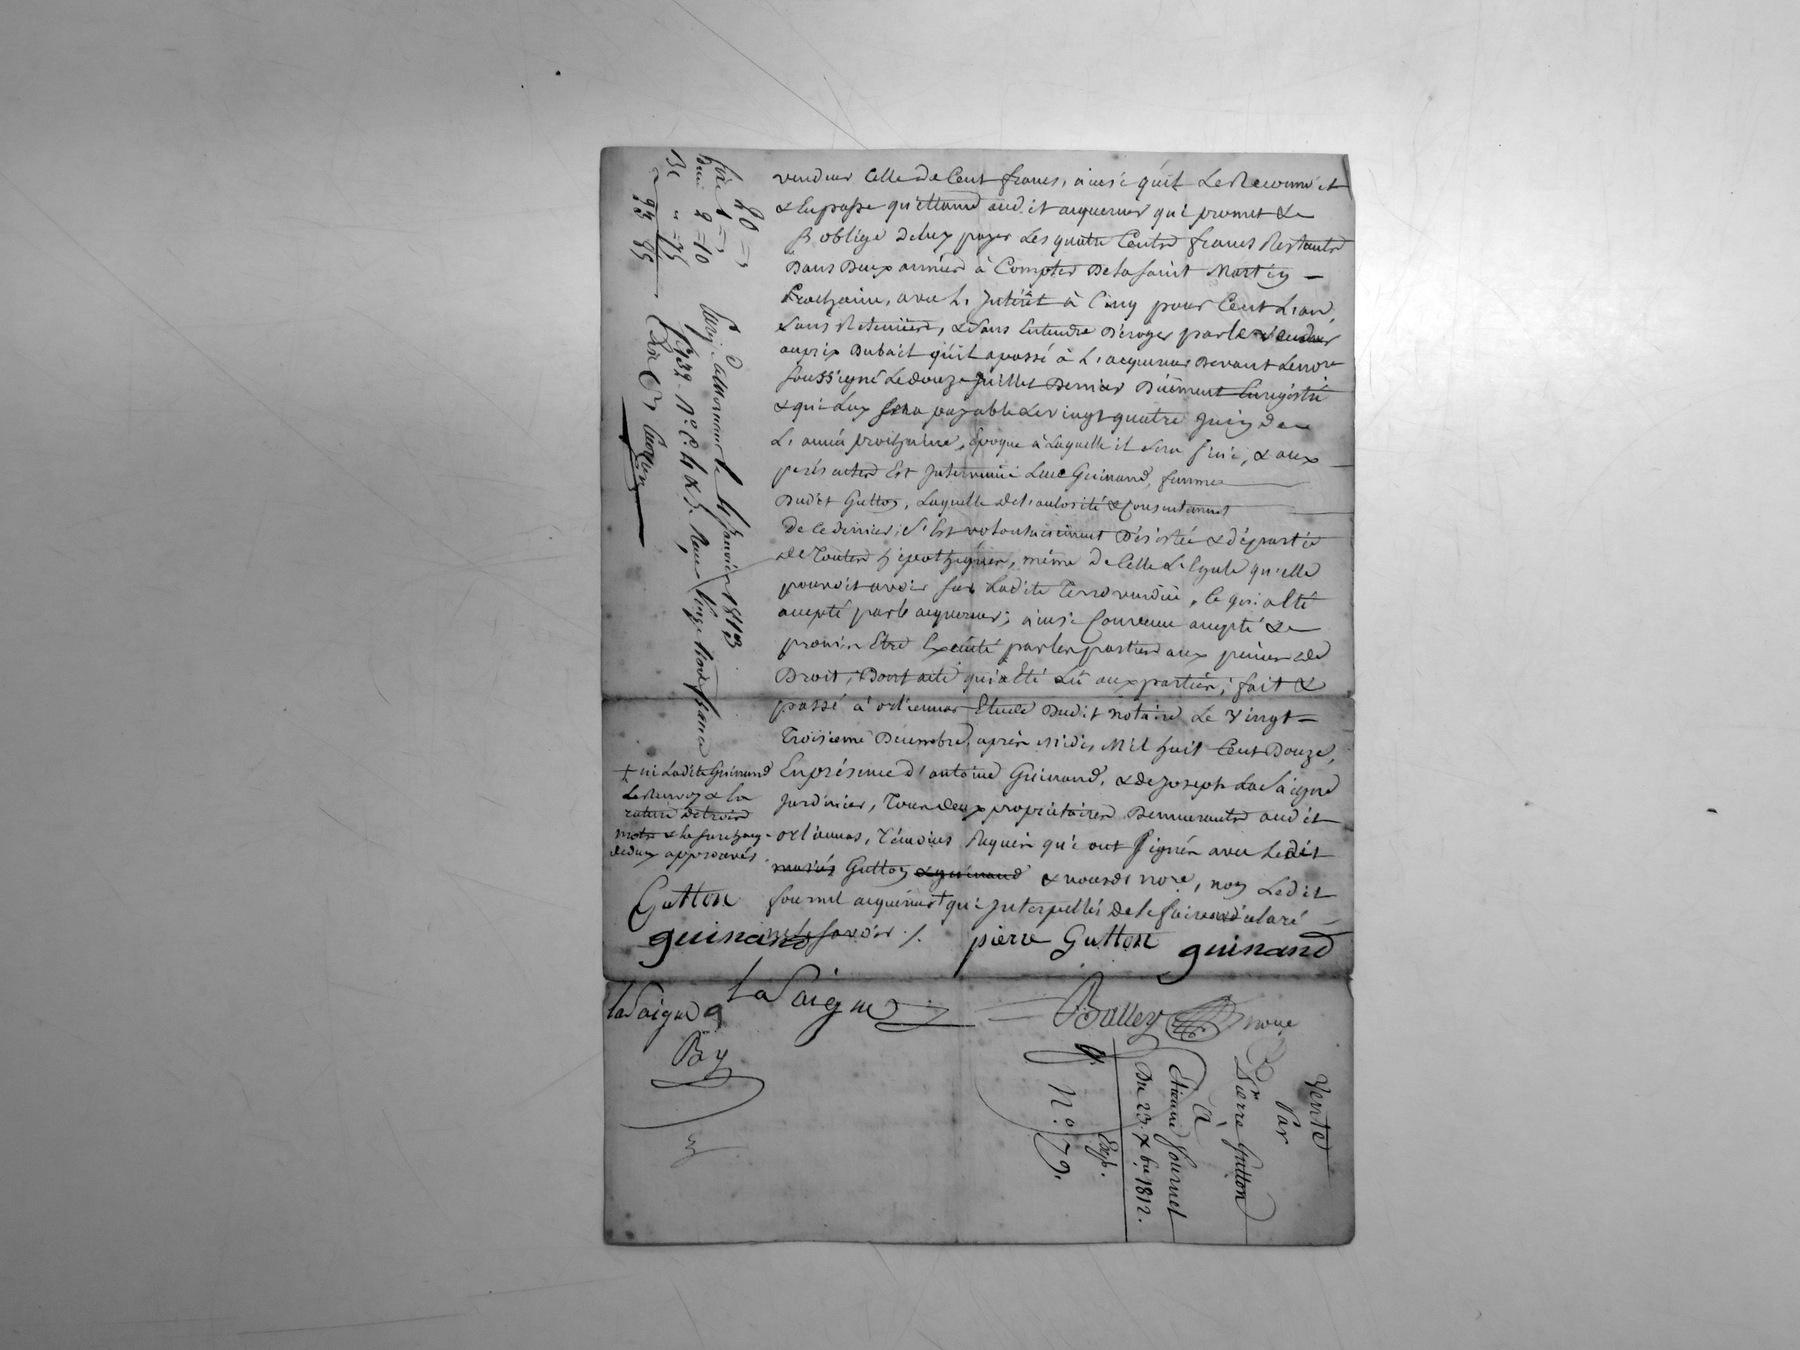 vendeur celle de Cent francs, ainsi qu'il Le Reconnoit
& En passe quittance aud.it acquereur qui promet &
S'oblige de luy payer Les quatre Cents francs Restants
Dans Deux années à Compter De la Saint Martin
Prochaine, avec L'Intérêt à Cinq pour Cent L'an
Sans Retenüe, & Sans Entendre Déroger par le vendeur
au prix Du bail qu'il a passé à L'acquereur Devant Le no.re
Soussigné Le douze Juillet Dernier Düement Enregistré
& qui Luy Sera payable Le vingt quatre Juin de
L'année prochaine, Epoque à Laquelle il Sera fini, & aux
présentes Est Intervenüe Luce Guinand, femme
Dud.it Gutton, Laquelle de L'autorité & Consentement
de Ce dernier, S'Est volontairement Désistée & départie
de Toutes hipothèques, même de Celle Légale qu'elle
pouvoit avoir Sur Ladite Terre vendüe, Ce qui a Eté
accepté par le acquereur; ainsi Convenu accepté &
promis Etre Exécuté par les parties aux peines de
Droit; Dont acte qui a Eté Lû aux parties; fait &
passé à orliennas Etude Dudit notaire Le vingt
Troisieme Decembre, après Midi, Mil huit Cent Douze,
En présence d'antoine Guinand, & de Joseph La Saigne
Jardinier, Tous deux propriétaires Demeurants aud.it
orliennas, Témoins Requis qui ont Signés avec Ledit
mariés Gutton & guinand & nousd.t no.re, non Ledit
fournel acquereur + qui Interpellés de le faire ont déclaré
ne le Savoir ./.
+ ni Ladite Guinand
Le Renvoy & la
rature de trois
mots & la Surcharge
de deux approuvés
Gutton
guinand
pierre Gutton guinand
la Saigne
la Saigne
Balley
no.re
Bey
Enr. à Mornant le 4 Janvier 1813
f.o 132. R.o C. 4 & 5. Reçu Vingt trois francs
20 =
1 =
2 = 10
Be " = 75
Vente
Par
Pierre Gutton
à
Etienne fournel
Du 23. Xbre 1812.
Exp.
N.o 79.